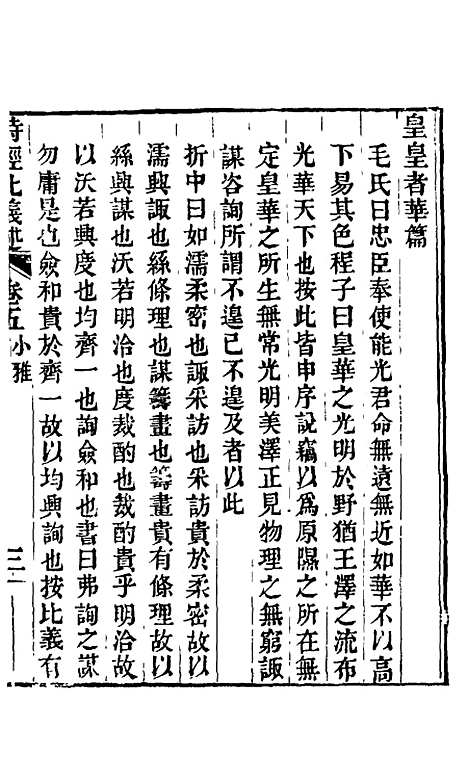 皇皇者華篇
毛氏曰忠臣奉使能光君命無遠無近如華不以高
下易其色程子曰皇華之光明於野猶王澤之流布
光華天下也按此皆申序說竊以爲原隰之所在無
定皇華之所生無常光明美澤正見物理之無窮諏
謀咨詢所謂不遑已不遑及者以此
折中曰如濡柔密也諏采訪也采訪貴於柔密故以
濡興諏也絲條理也謀籌畫也籌畫貴有條理故以
絲興謀也沃若明洽也度裁酌也裁酌貴乎明洽故
以沃若興度也均齊一也詢僉和也書曰弗詢之謀
勿庸是也僉和貴於齊一故以均興詢也按比義有
詩經比義述 卷五 小雅 三